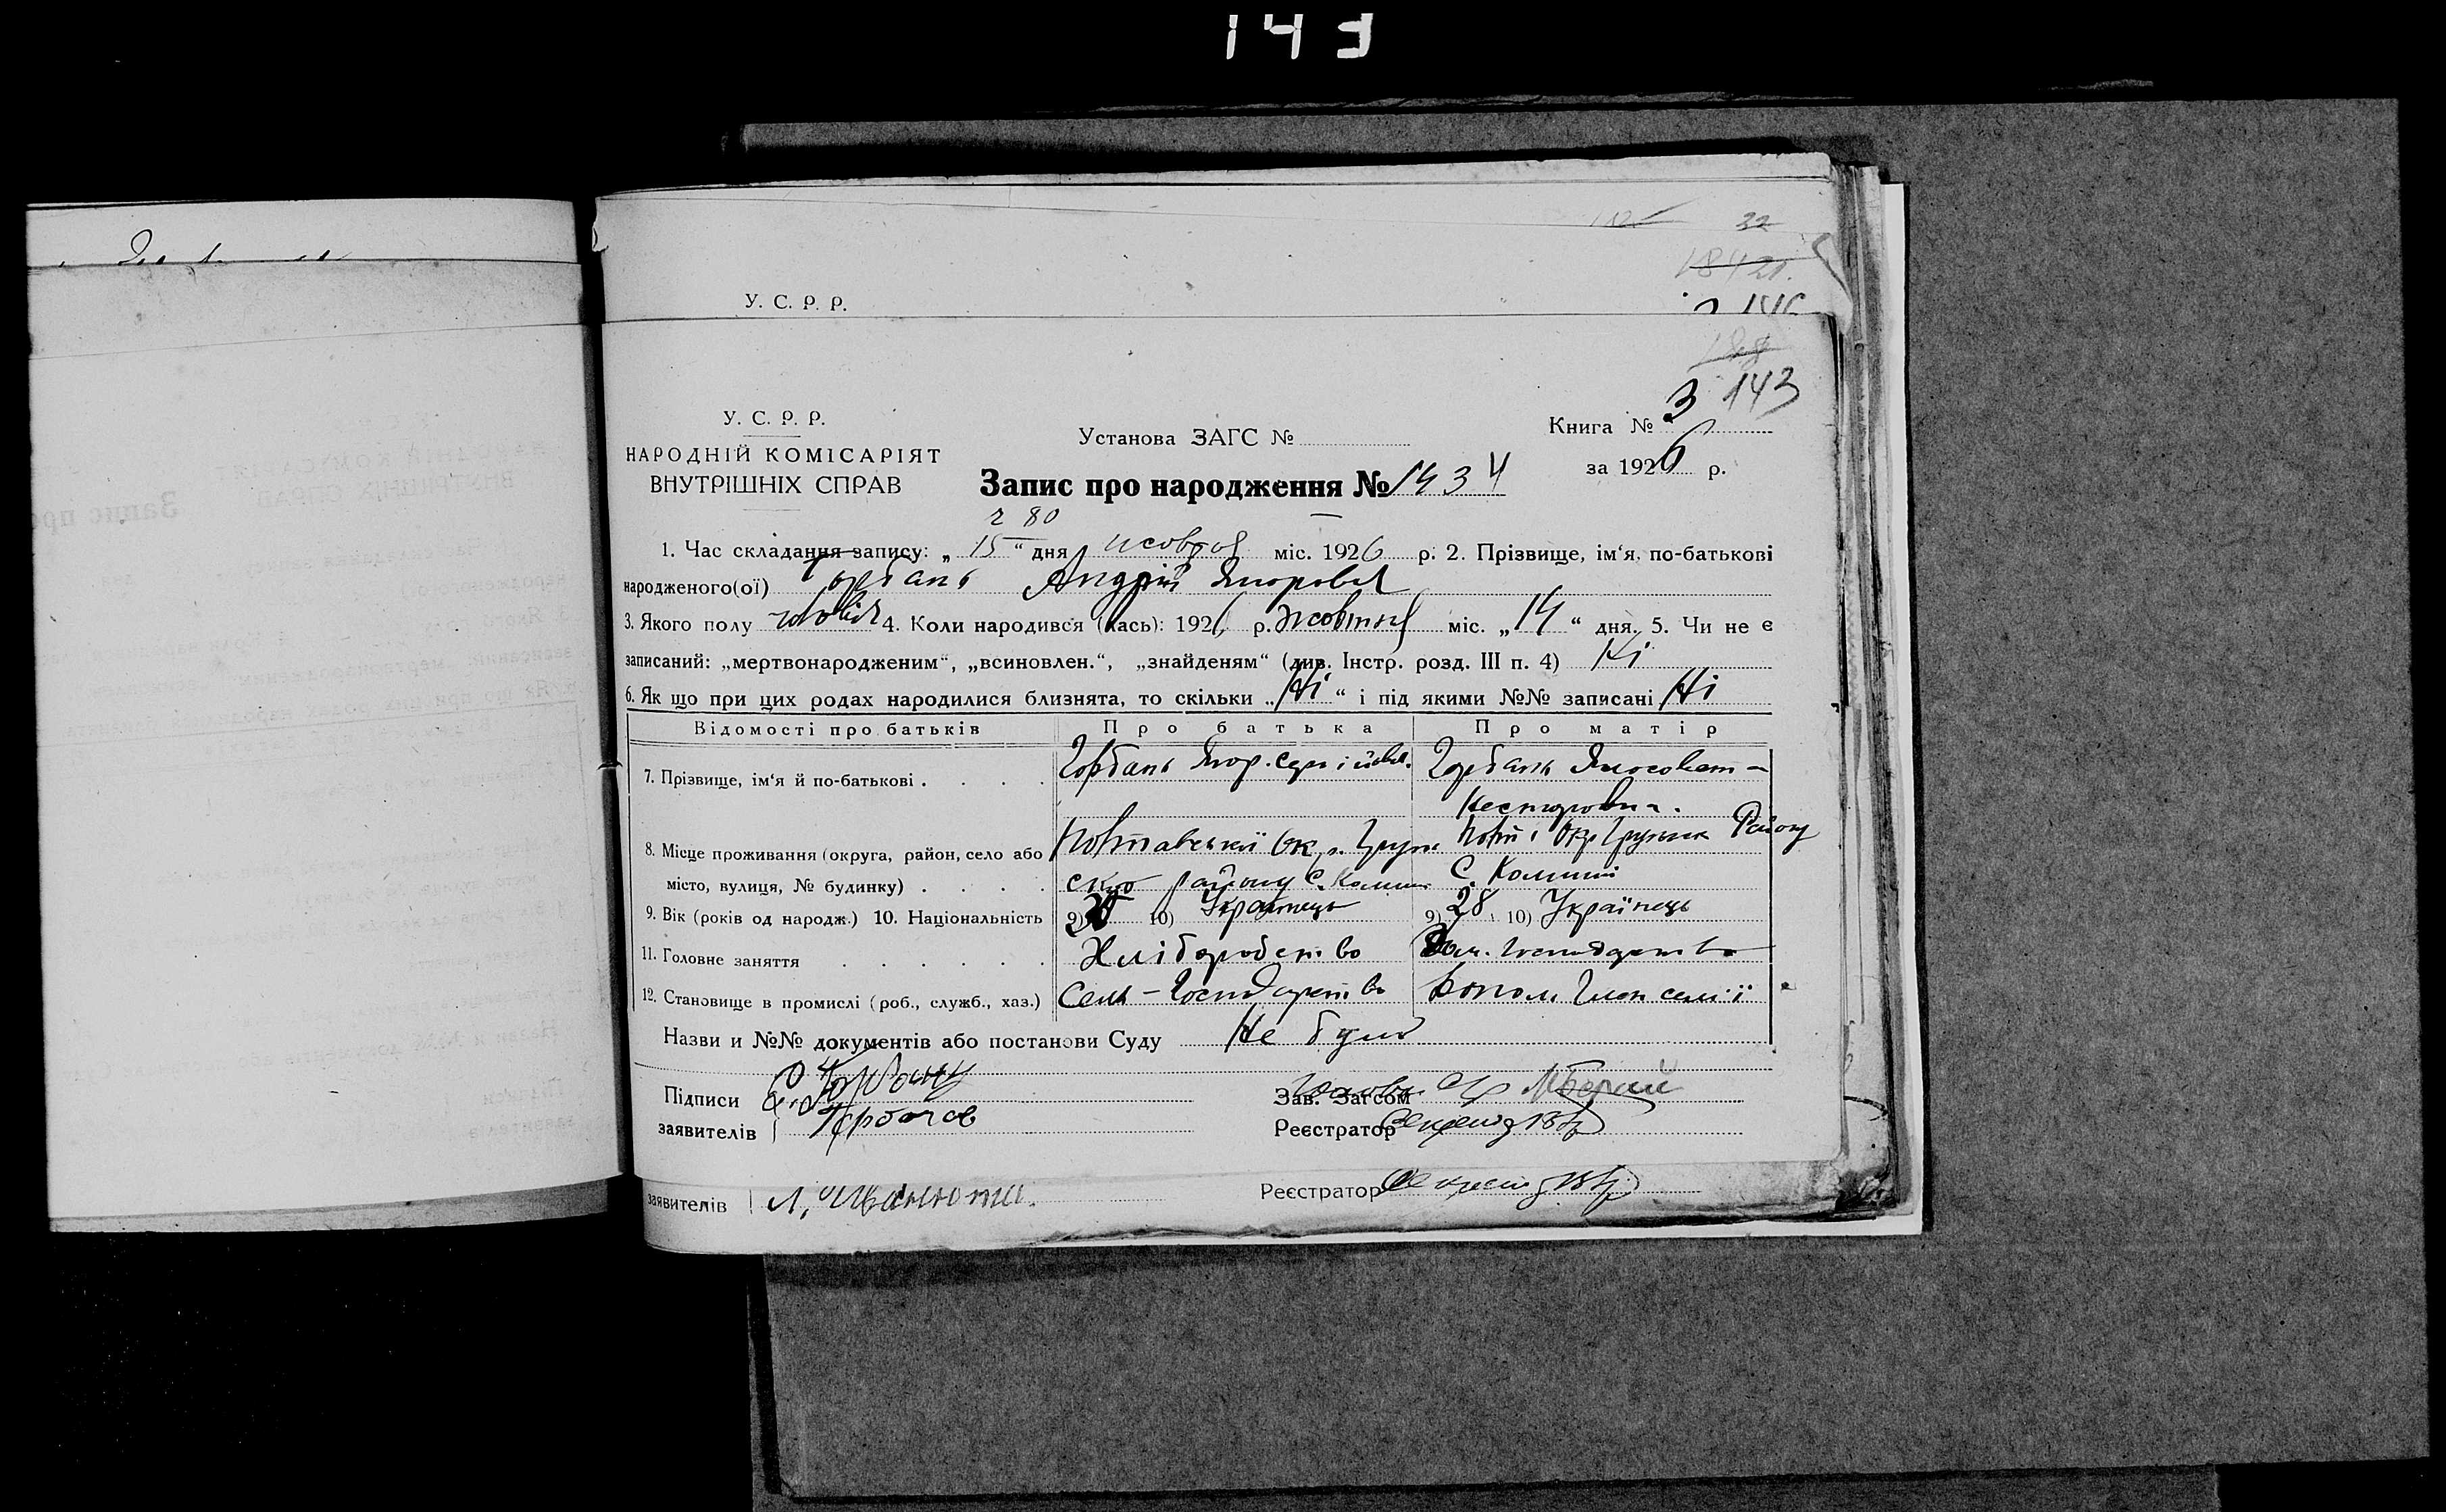 143
22
18421.
У. С. Р. Р.
143
У. С. Р. Р.
НАРОДНІЙ КОМІСАРІЯТ
ВНУТРІШНІХ СПРАВ
Установа ЗАГС №
Книга № 3
за 1926 р.
Запис про народження № 1434
280
1. Час складання запису: „15“ дня жовтня міс. 1926 р. 2. Прізвище, ім‘я, по-батькові
народженого(ої) Горбань Андрій Ягорович
3. Якого полу чоловіч 4. Коли народився (лась): 1926 р. жовтня міс. „14“ дня. 5. Чи не є
записаний: „мертвонародженим“, „всиновлен.“, „знайденям“ (див. Інстр. розд. III п. 4) Ні
6. Як що при цих родах народилися близнята, то скільки „Ні“ і під якими №№ записані Ні
Відомості про батьків Про батька Про матір
7. Прізвище, ім‘я й по-батькові . . . . Горбань Ягор. Сергійов. Горбань
Несторовна.
8. Місце проживання (округа, район, село або Полтавської Ок. Грун Полт. Окр. Грунск Району
місто, вулиця, № будинку) . . . . ского району С. Комиш С. Комиші
9. Вік (років од народж.) 10. Національність 9) 10) Українець 9) 28 10) Українець
11. Головне заняття . . . . . . Хліборобство Дом. господарство
12. Становище в промислі (роб., служб., хаз.) Сель-Господарство Допом. член семїї
Назви и №№ документів або постанови Суду Не було
Підписи Горбань
заявителів Горбачов
Зав. Загсом
Реєстратор
заявителів
Реєстратор